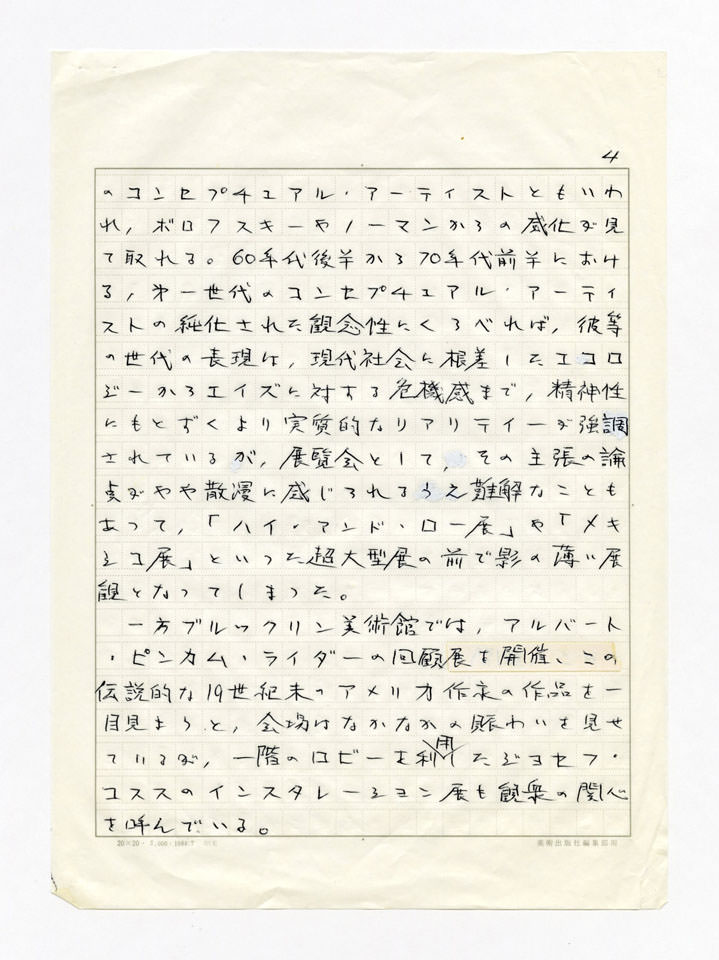 4
のコンセプチュアル・アーティストともいわ
れ，ボロフスキーやノーマンからの感化が見
て取れる。60年代後半から70年代前半におけ
る，第一世代のコンセプチュアル・アーティ
ストの純化された観念性にくらべれば，彼等
の世代の表現は，現代社会に根差したエコロ
ジーからエイズに対する危機感まで，精神性
にもとずくより実質的なリアリティーが強調
されているが，展覧会として，その主張の論
点がやや散漫に感じられるうえ難解なことも
あって，「ハイ・アンド・ロー展」や「メキ
シコ展」といった超大型展の前で影の薄い展
観となってしまった。
一方ブルックリン美術館では，アルバート
・ピンカム・ライダーの回顧展を開催、この
伝説的な19世紀末のアメリカ作家の作品を一
目見ようと，会場はなかなかの賑わいを見せ
ているが，一階のロビーを利用したジョセフ・
コススのインスタレーション展も観衆の関心
を呼んでいる。
20×20・5,000・1988.7 美術出版社編集部用